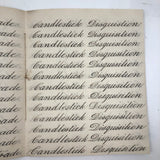 Candlestick Disquisition
Candlestick Disquisition
ade Candlestick Disquisition
ade Candlestick Disquisition
ade Candlestick Disquisition
ade Candlestick Disquisition
ade Candlestick Disquisition
ade Candlestick Disquisition
ade Candlestick Disquisition
Candlestick Disquisition
Candlestick Disquisition
Candlestick Disquisition